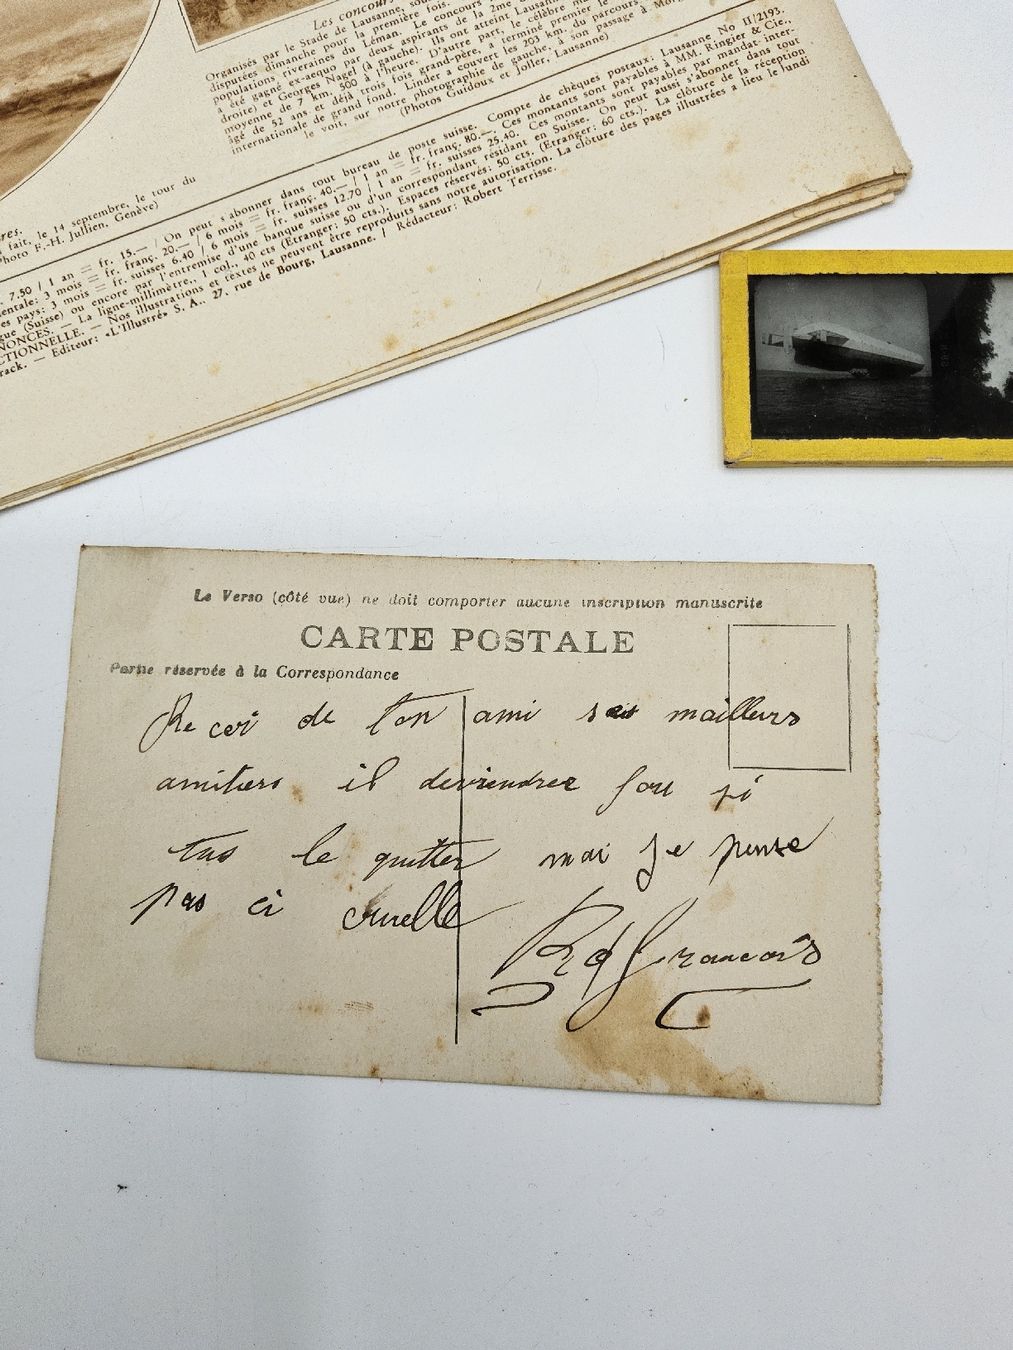 Les concours
Organisés par le Stade de Lausanne, sou
disputées dimanche pour la première fois.
populations riveraines du Léman. Le concours
a été gagné ex-aequo par deux aspirants de la 2me
droite) et Georges Nagel (à gauche). Ils ont atteint Lausanne
moyenne de 7 km. 500 à l'heure. D'autre part, le célèbre m
âgé de 52 ans et déjà trois fois grand-père, a terminé premier le
internationale de grand fond. Linder a couvert les 203 km. du parcours
le voit, sur notre photographie de gauche, à son passage à Mor
(Photos Guidoux et Joller, Lausanne)
res.
fait, le 14 septembre, le tour du
hoto F.-H. Jullien, Genève)
7.50 / 1 an = fr. 15.— / On peut s'abonner dans tout bureau de poste suisse. Compte de chèques postaux: Lausanne No II/2193.
entale: 3 mois = fr. franç. 20.— / 6 mois = fr. franç. 40.— / 1 an = fr. franç. 80.—. Ces montants sont payables à MM. Ringier & Cie.,
es pays: 3 mois = fr. suisses 6.40 / 6 mois = fr. suisses 12.70 / 1 an = fr. suisses 25.40. Ces montants sont payables par mandat inter-
gue (Suisse) ou encore par l'entremise d'une banque suisse ou d'un correspondant résidant en Suisse. On peut aussi s'abonner dans tout
NONCES. — La ligne-millimètre, 1 col., 40 cts (Etranger: 50 cts.). Espaces réservés: 50 cts. (Etranger: 60 cts.). La clôture de la réception
CTIONNELLE. — Nos illustrations et textes ne peuvent être reproduits sans notre autorisation. La clôture des pages illustrées a lieu le lundi
rack. — Editeur: «L'Illustré» S. A., 27, rue de Bourg, Lausanne. / Rédacteur: Robert Terrisse.
Le Verso (côté vue) ne doit comporter aucune inscription manuscrite
CARTE POSTALE
Partie réservée à la Correspondance
Re coi de ton ami ses mailleurs
amitiers il deviendrez fou si
tus le quitter mai je pense
pas ci cruelle
Rd Francois